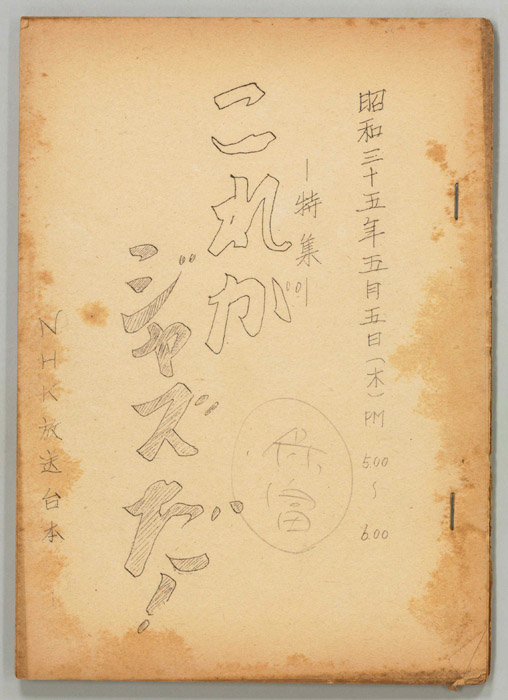 昭和三十五年五月五日(木)PM 5.00〜6.00
―特集―
これが
ジャズだ!
NHK放送台本